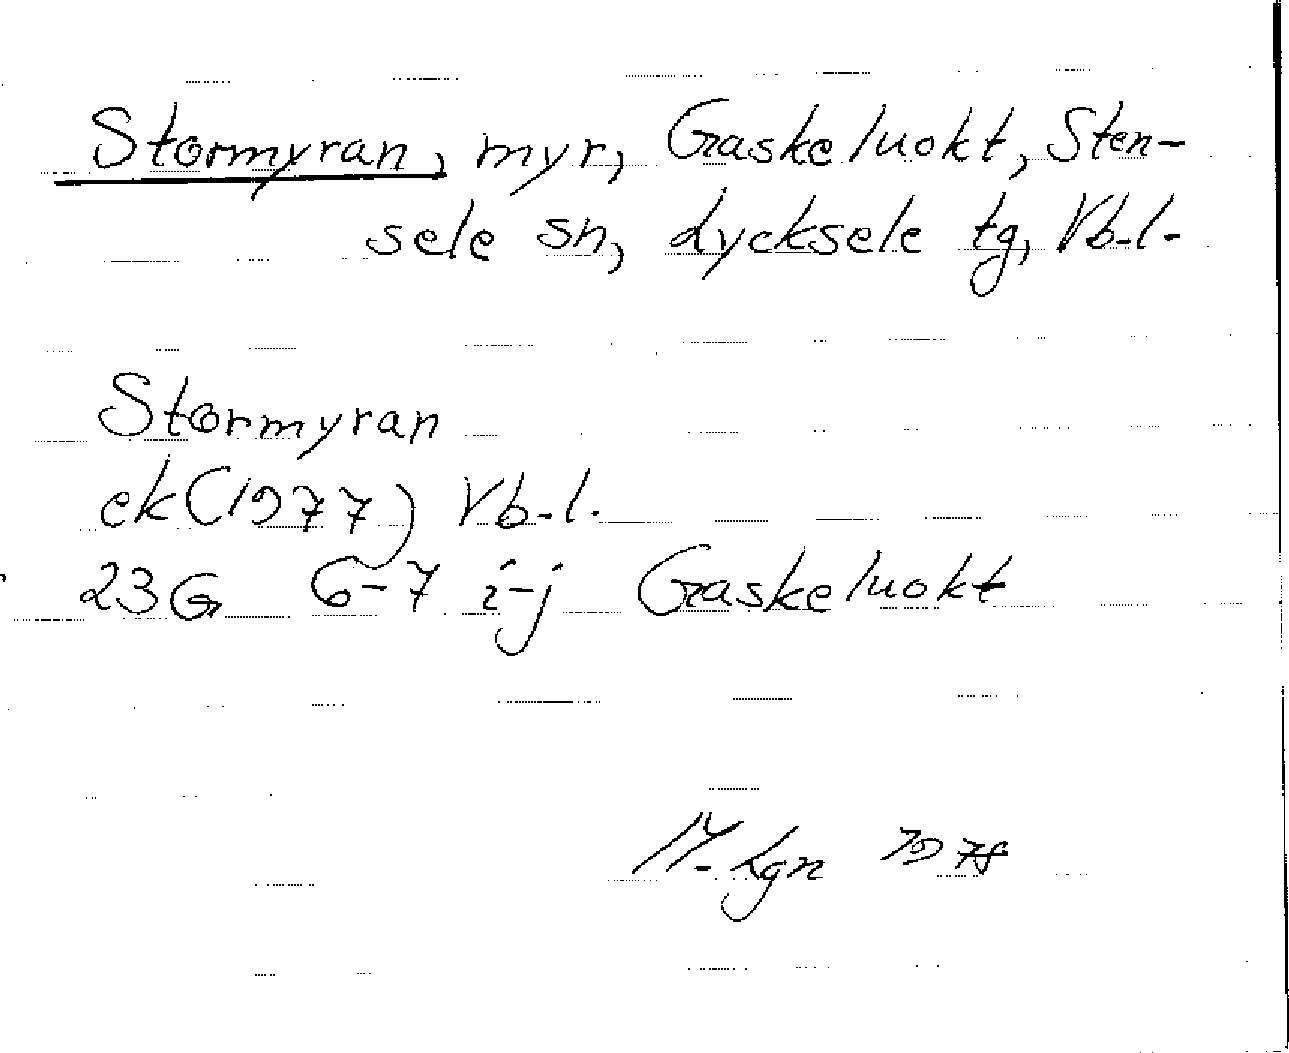 Stormyran, myr, Gaskeluokt, Sten-
sele sn, Lycksele tg, Vb.l.
Stormyran
ek (1977) Vb.l.
23G 6-7 i-j Gaskeluokt
M. Lgn 1978